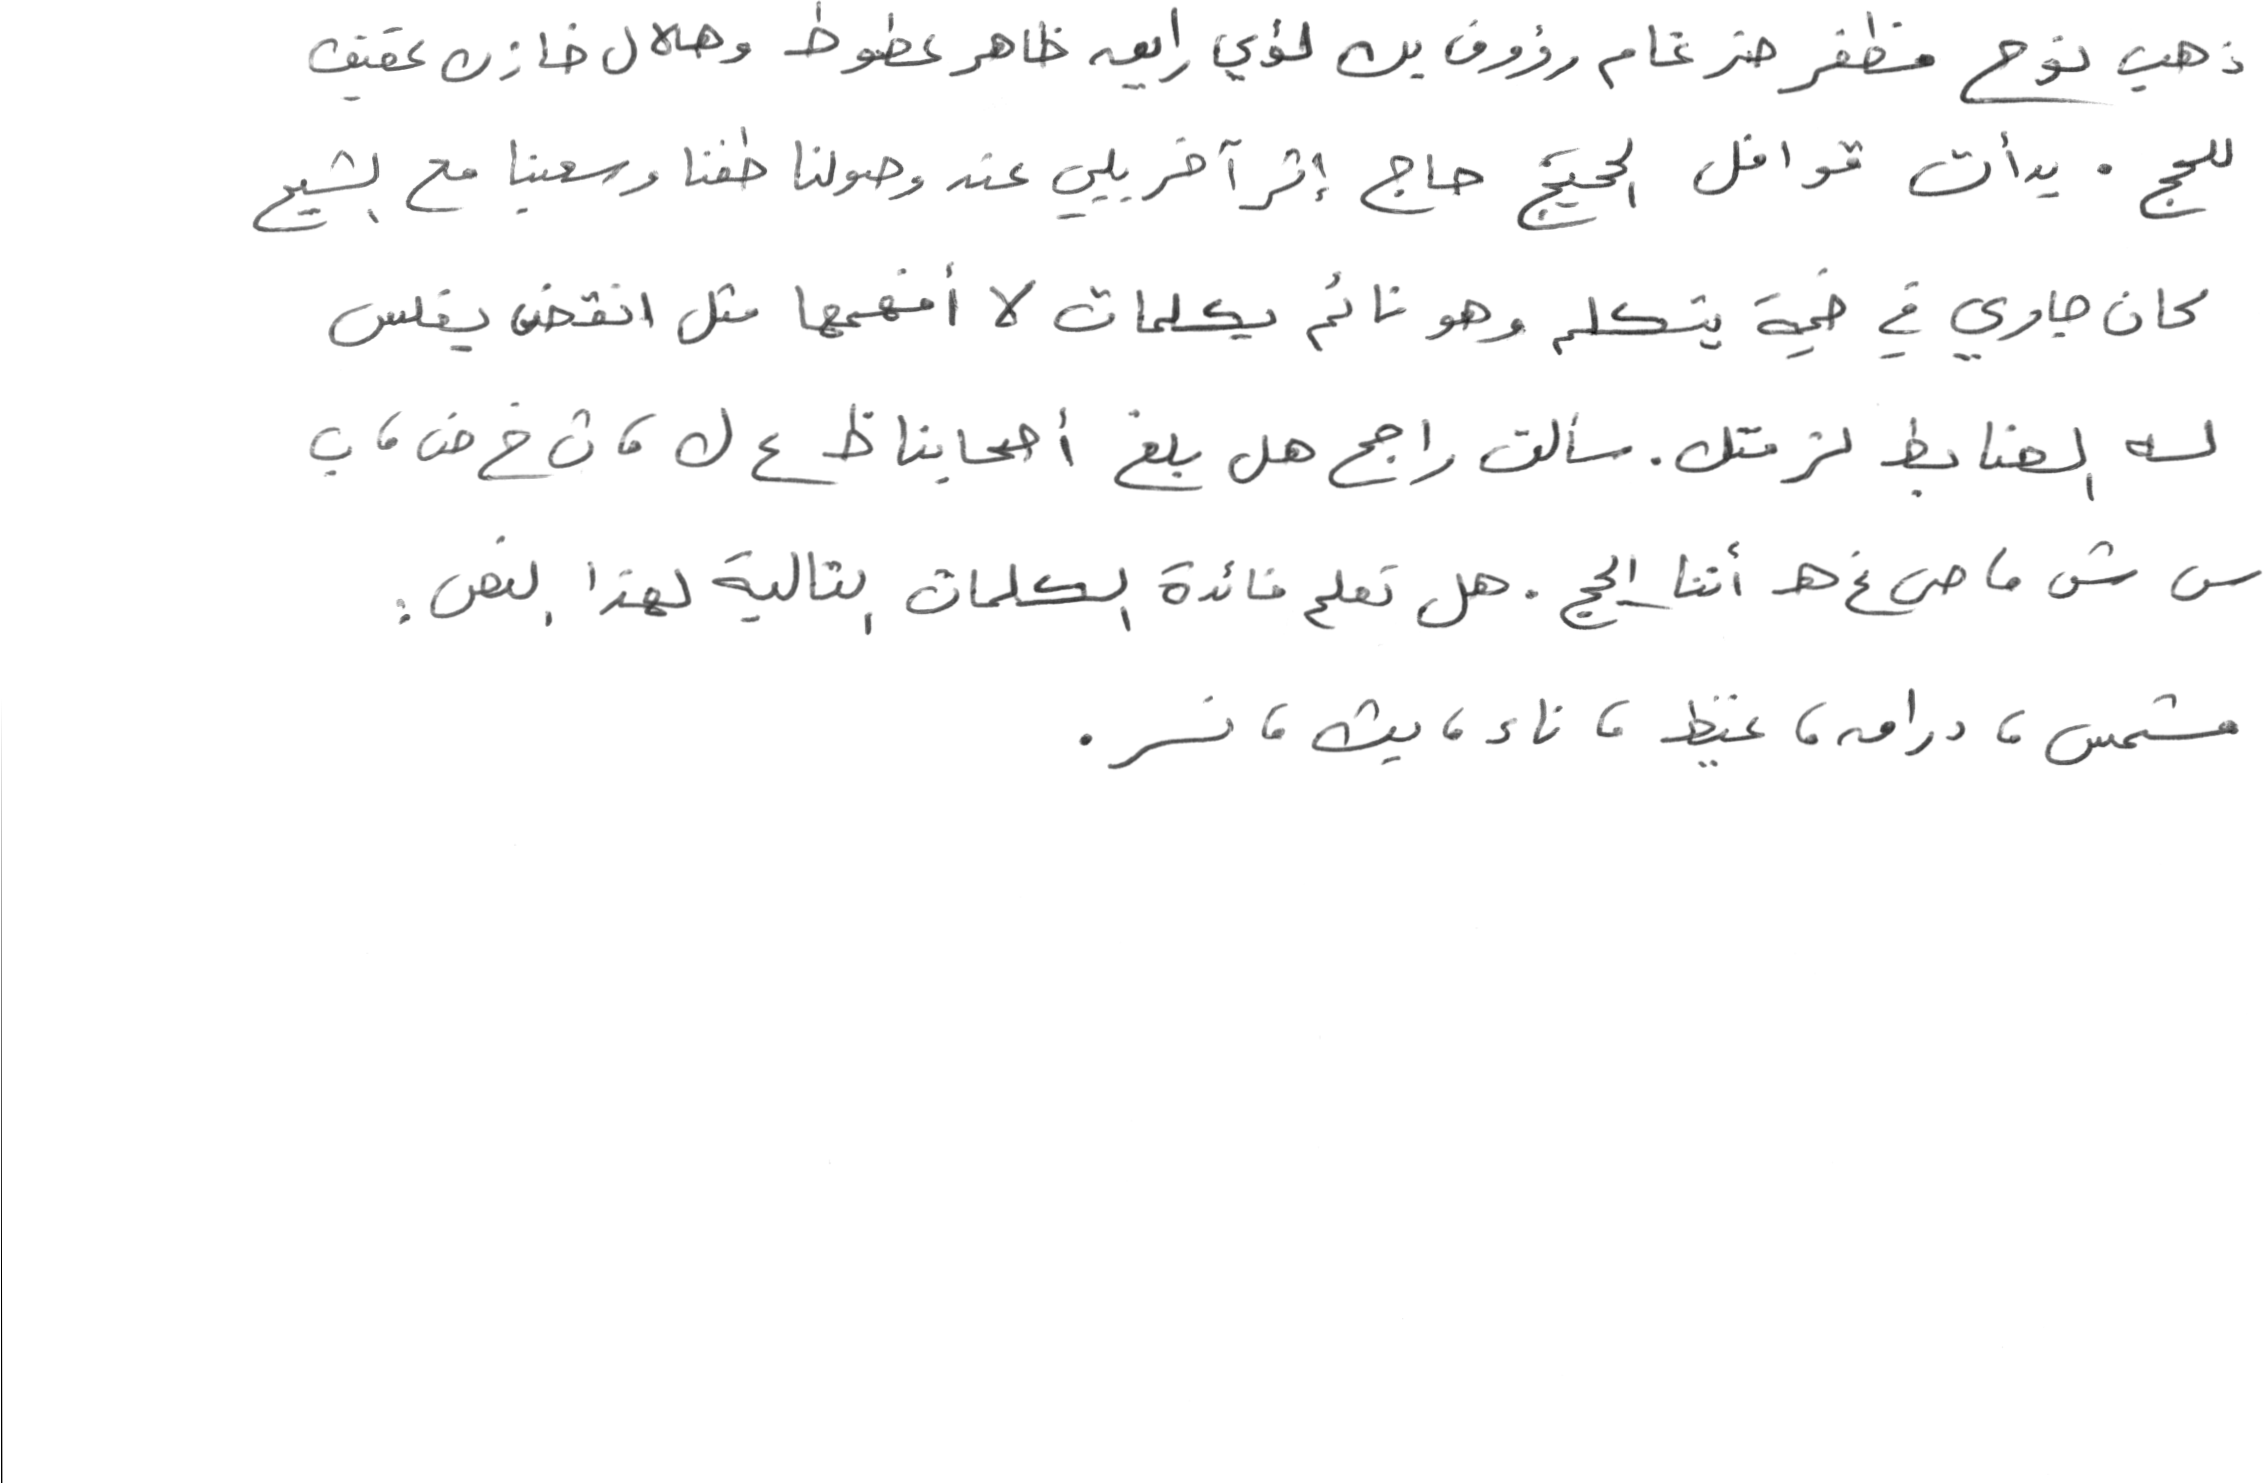 ذهب نوح مظفر ضرغام رؤوف بك لؤي رايعه ظاهر عطوط وهلال خازن عفيف
للحج . بدأت قوافل الحجيج حاج إثر آخر يلبي عند وصولنا طفنا وسعينا مع الشيخ
كان جاري في خيمة يتكلم وهو نائم بكلمات لا أفهمها مثل انقض يفلس
لسه الضابط لزمتك . سألت راجح هل بلغ أصحابنا ظ ع ك ، ث خ ض ، ب
س ش ، ص غ هـ أثناء الحج . هل تعلم فائدة الكلمات التالية لهذا النص :
مشمس ، دراهم ، غيظ ، ناء ، يبث ، نسر .